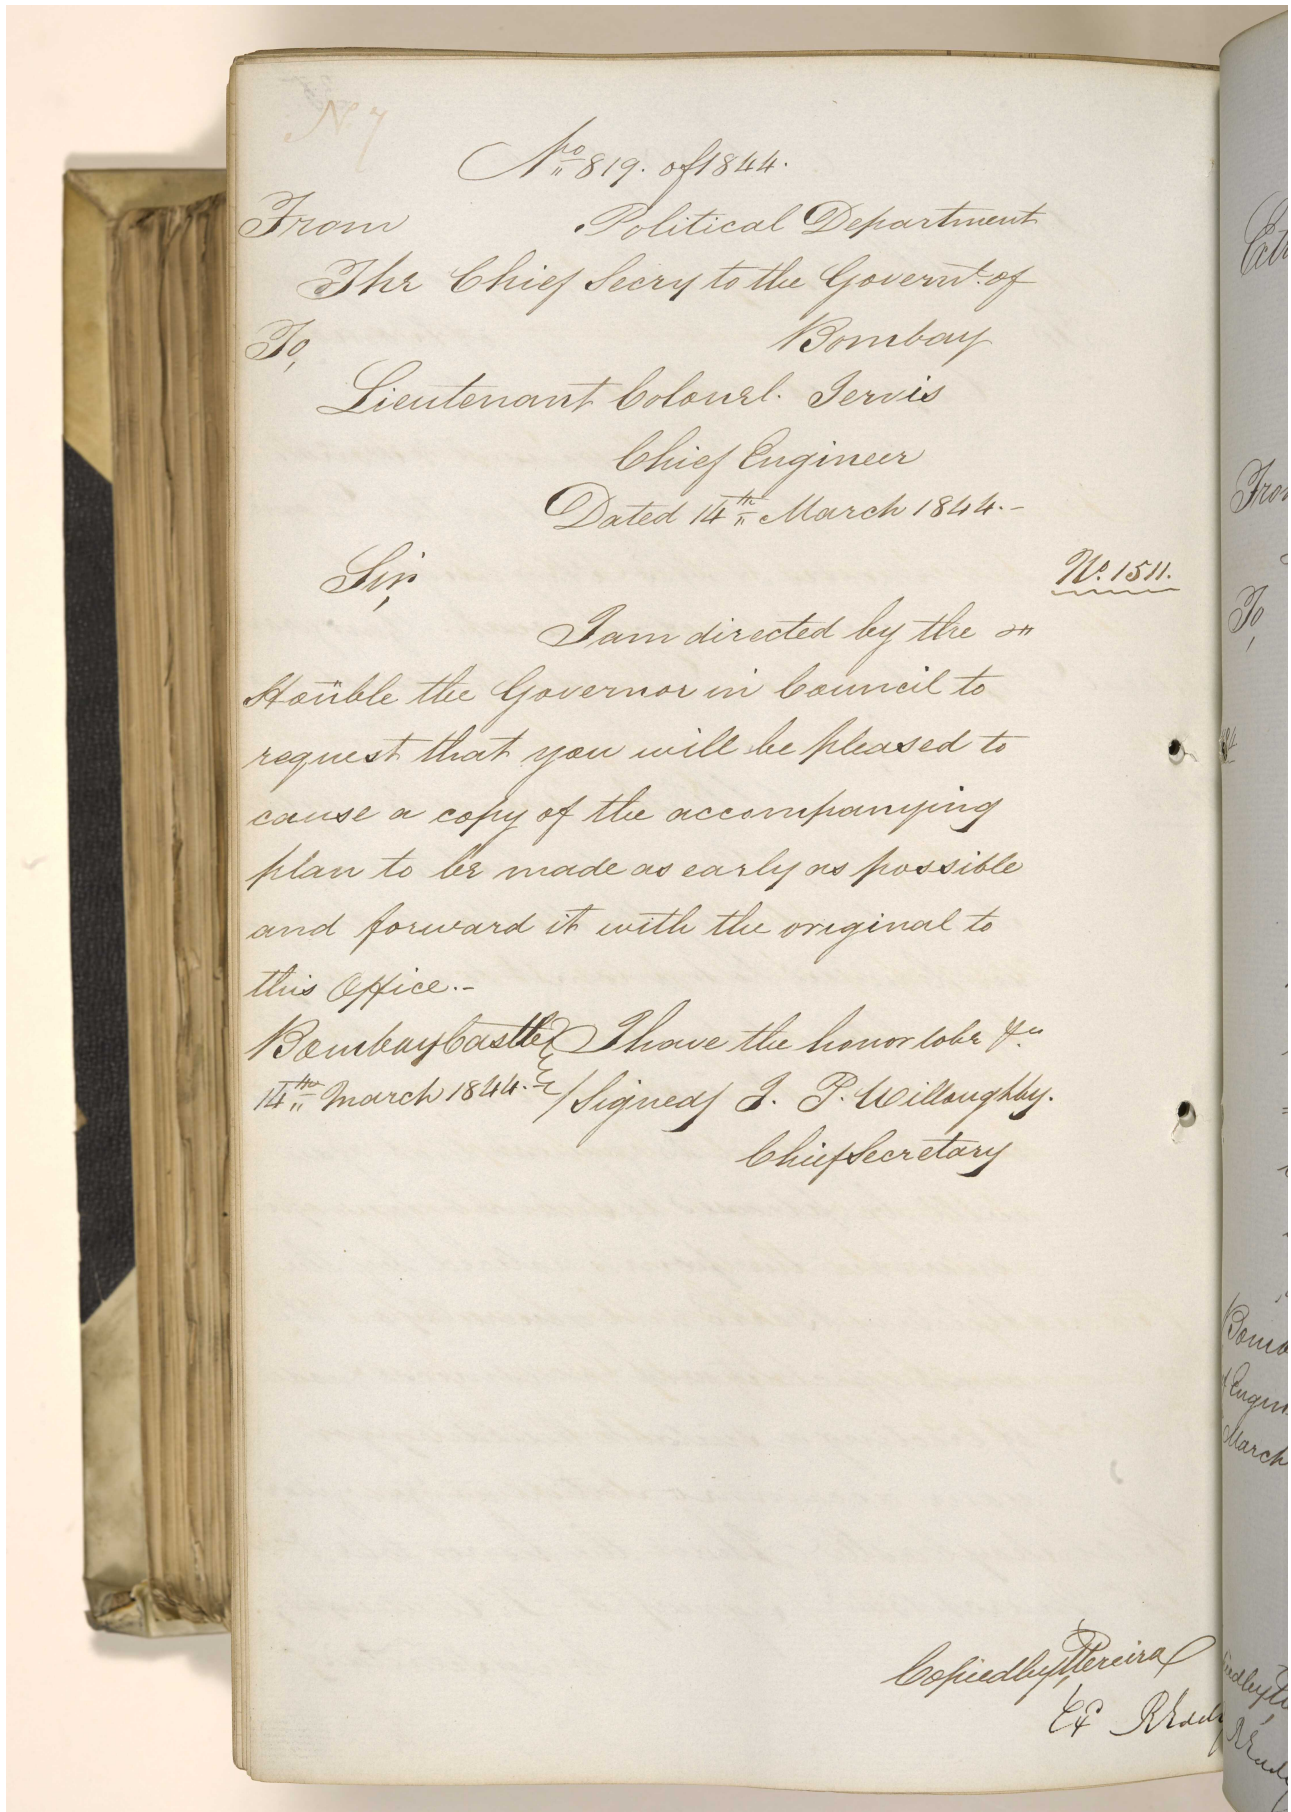 N. 7
No 819. of 1844.
From Political Department
The Chief Secry to the Governt. of
To, Bombay
Lieutenant Colonel. Jervis
Chief Engineer
Dated 14th March 1844.-
Sir, No. 1511.
I am directed by the
Honble the Governor in Council to
request that you will be pleased to
cause a copy of the accompanying
plan to be made as early as possible
and forward it with the original to
this Office.-
Bombay Castle I have the honor to be &ca
14th March 1844.- /Signed/ J. P. Willoughby.
Chief Secretary
Copied by Pereira
Ex
From
To,
Bomb
Engin
March